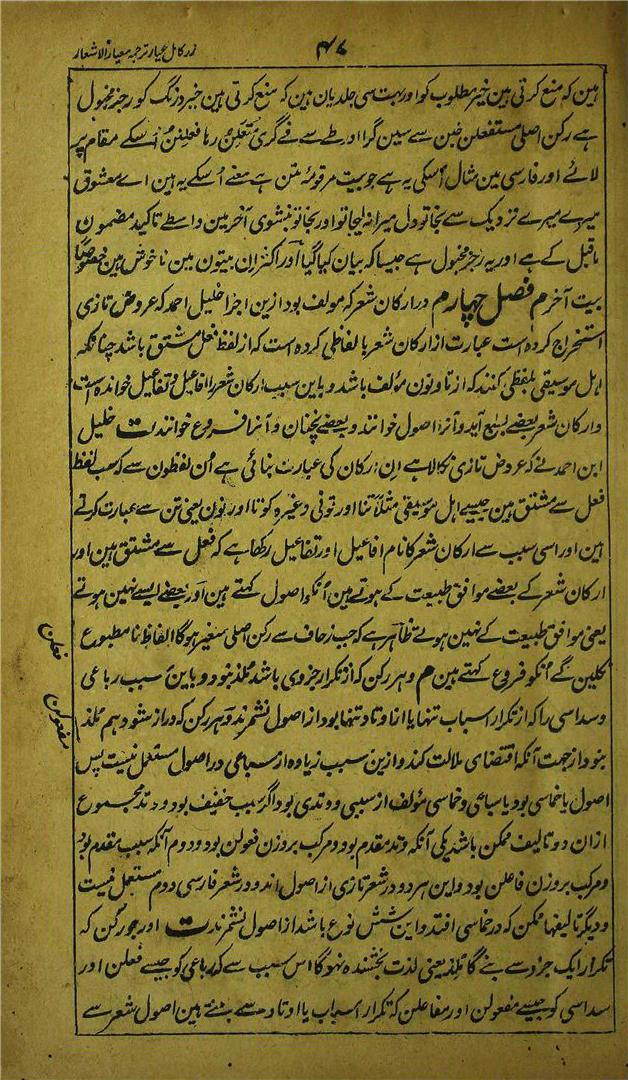 زر کامل عیار ترجمہ معیار الاشعار
۴۷
ہین کہ منع کرتی ہین خیر مطلوب کو اور بہت سی جلدیان ہین کہ منع کرتی ہین خیر درنگ کو رجز مخبول
ہے رکن اصلی مستفعلن خبن سے سین گرا اور طے سے فے گری متعلن رہا فعلتن اُسکے مقام پر
لائے اور فارسی مین مثال اُسکی یہ ہے جو بیت مرقومۂ متن ہے معنے اُسکے یہ ہین اے معشوق
میرے میرے نزدیک سے بجا تو دل میرا نہ لیجا تو اور بجا تو بنشوی آخر مین واسطے تاکید مضمون
ماقبل کے ہے اور یہ رجز مخبول ہے جیسا کہ بیان کیا گیا اور اکثر ان بیتون مین ناخوش ہین خصوصًا
بیت آخر م فصل چہارم در ارکان شعر کہ مولف بود ازین اجزا خلیل احمد کہ عروض تازی
استخراج کردہ است عبارت از ارکان شعر بالفاظی کردہ است کہ از لفظ فعل مشتق باشد چنانکہ
اہل موسیقی بلفظی کنند کہ از تا و نون مؤلف باشد و باین سبب ارکان شعر را افاعیل و تفاعیل خواندہ است
و ارکان شعر بعضے بطبع آید و آنرا اصول خوانند و بعضے نچنان و آنرا فروع خوانند ت خلیل
ابن احمد نے کہ عروض تازی نکالا ہے ان ارکان کی عبارت بنائی ہے اُن لفظون سے کہ سب لفظ
فعل سے مشتق ہین جیسے اہل موسیقی مثلًا تنا اور تونی وغیرہ کو تا اور نون یعنی تن سے عبارت کرتے
ہین اور اسی سبب سے ارکان شعر کا نام افاعیل اور تفاعیل رکھا ہے کہ فعل سے مشتق ہین اور
ارکان شعر کے بعضے موافق طبیعت کے ہوتے ہین اُنکو اصول کہتے ہین اور بعضے ایسے نہین ہوتے
یعنی موافق طبیعت کے نہین ہوتے ظاہر ہے کہ جب زحاف سے رکن اصلی متغیر ہوگا الفاظ نامطبوع
نکلین گے اُنکو فروع کہتے ہین م و ہر رکن کہ از تکرار جزوی باشد ملذ نبود و باین سبب رباعی
و سداسی را کہ از تکرار اسباب تنہا یا از اوتاد تنہا بود از اصول نشمرند و ہر رکن کہ دراز شود ہم ملذ
نبود از جہت آنکہ اقتضای ملالت کند و ازین سبب زیادہ از سباعی در اصول مستعمل نیست پس
اصول یا خماسی بود یا سباعی و خماسی مؤلف از سببی و وتدی بود اگر سبب خفیف بود و وتد مجموع
ازان دو تالیف ممکن باشد یکی آنکہ وتد مقدم بود و مرکب بر وزن فعولن بود و دوم آنکہ سبب مقدم بود
و مرکب بر وزن فاعلن بود و این ہر دو در شعر تازی از اصول اند و در شعر فارسی دوم مستعمل نیست
و دیگر تالیفہا ممکن کہ در خماسی افتد و این شش نوع باشد از اصول نشمرند ت اور جو رکن کہ
تکرار ایک جزو سے بنے گا ملذ یعنی لذت بخشندہ نہو گا اس سبب سے کہ رباعی کو جیسے فعلن اور
سداسی کو جیسے مفعولن اور مفاعلن کہ تکرار اسباب یا اوتاد سے بنتے ہین اصول شعر سے
فعلن
مفعولن